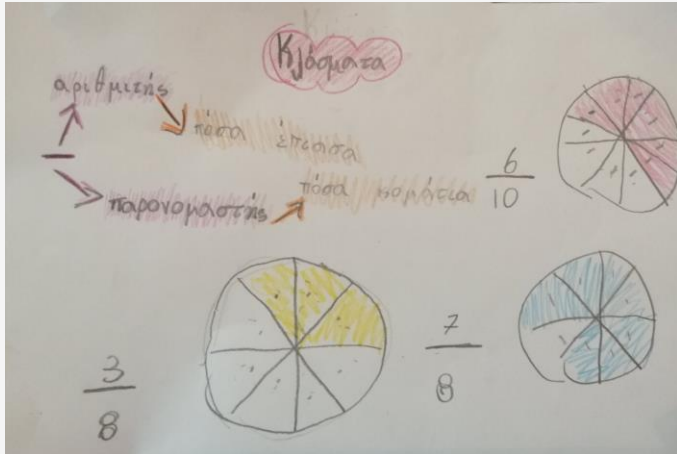 Κλάσματα
αριθμιτής
πόσα έπιασα
παρονομαστής
πόσα κομάτια
6
10
3
8
7
8